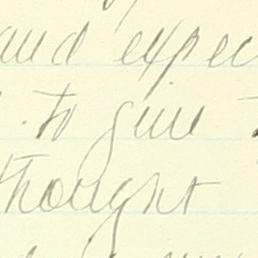 and expec
to give
thought